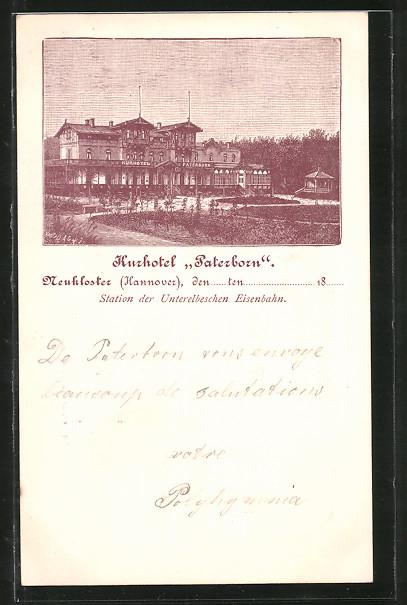 KURHOTEL PATERBORN
Kurhotel „Paterborn“.
Neukloster (Hannover), den......ten........................ 18......
Station der Unterelbeschen Eisenbahn.
De Paterborn vous envoye
beaucoup de salutations
votre
Polyhymnia